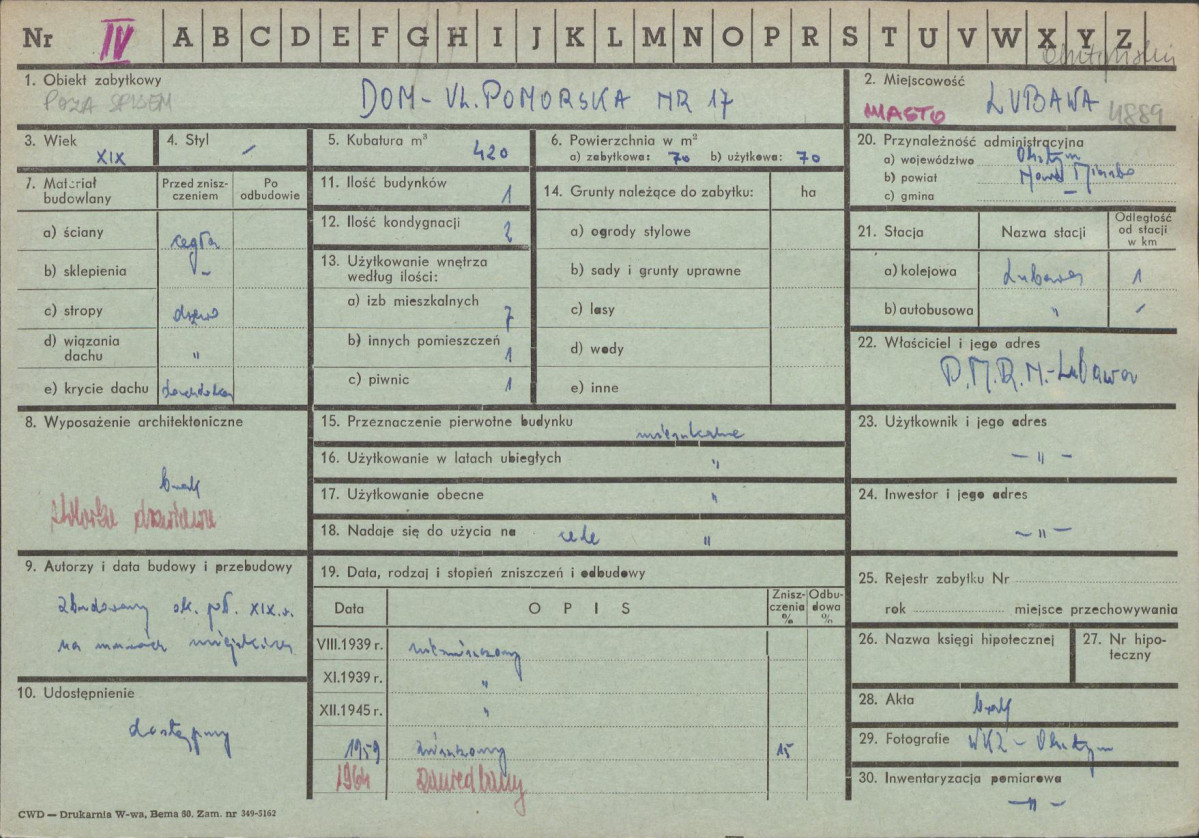 Nr IV A B C D E F G H I J K L M N O P R S T U V W X Y Z
1. Obiekt zabytkowy
POZA SPISEM
DOM - UL. POMORSKA NR 17
2. Miejscowość
MIASTO LUBAWA 4889
3. Wiek
XIX
4. Styl
/
5. Kubatura m³
420
6. Powierzchnia w m²
a) zabytkowa: 70 b) użytkowa: 70
20. Przynależność administracyjna
a) województwo Olsztyn
b) powiat Nowe Miasto
c) gmina –
7. Materiał budowlany
Przed zniszczeniem
Po odbudowie
a) ściany cegła
b) sklepienia –
c) stropy drewno
d) wiązania dachu "
e) krycie dachu dachówka
11. Ilość budynków 1
12. Ilość kondygnacji 2
13. Użytkowanie wnętrza według ilości:
a) izb mieszkalnych 7
b) innych pomieszczeń 1
c) piwnic 1
14. Grunty należące do zabytku: ha
a) ogrody stylowe
b) sady i grunty uprawne
c) lasy
d) wody
e) inne
21. Stacja
Nazwa stacji
Odległość od stacji w km
a) kolejowa Lubawa 1
b) autobusowa " /
22. Właściciel i jego adres
P.M.R.N. - Lubawa
8. Wyposażenie architektoniczne
brak
stolarka drzwiowa
15. Przeznaczenie pierwotne budynku mieszkalne
16. Użytkowanie w latach ubiegłych "
17. Użytkowanie obecne "
18. Nadaje się do użycia na cele "
23. Użytkownik i jego adres
– " –
24. Inwestor i jego adres
– " –
9. Autorzy i data budowy i przebudowy
Zbudowany ok. poł. XIX w.
na murach miejskich
19. Data, rodzaj i stopień zniszczeń i odbudowy
Data
OPIS
Zniszczenia %
Odbudowa %
VIII.1939 r. niezniszczony
XI.1939 r. "
XII.1945 r. "
1959 15
1964 zaniedbany
25. Rejestr zabytku Nr
rok miejsce przechowywania
26. Nazwa księgi hipotecznej
27. Nr hipoteczny
10. Udostępnienie
dostępny
28. Akta brak
29. Fotografie WKZ - Olsztyn
30. Inwentaryzacja pomiarowa
– " –
CWD — Drukarnia W-wa, Bema 60. Zam. nr 349-5162